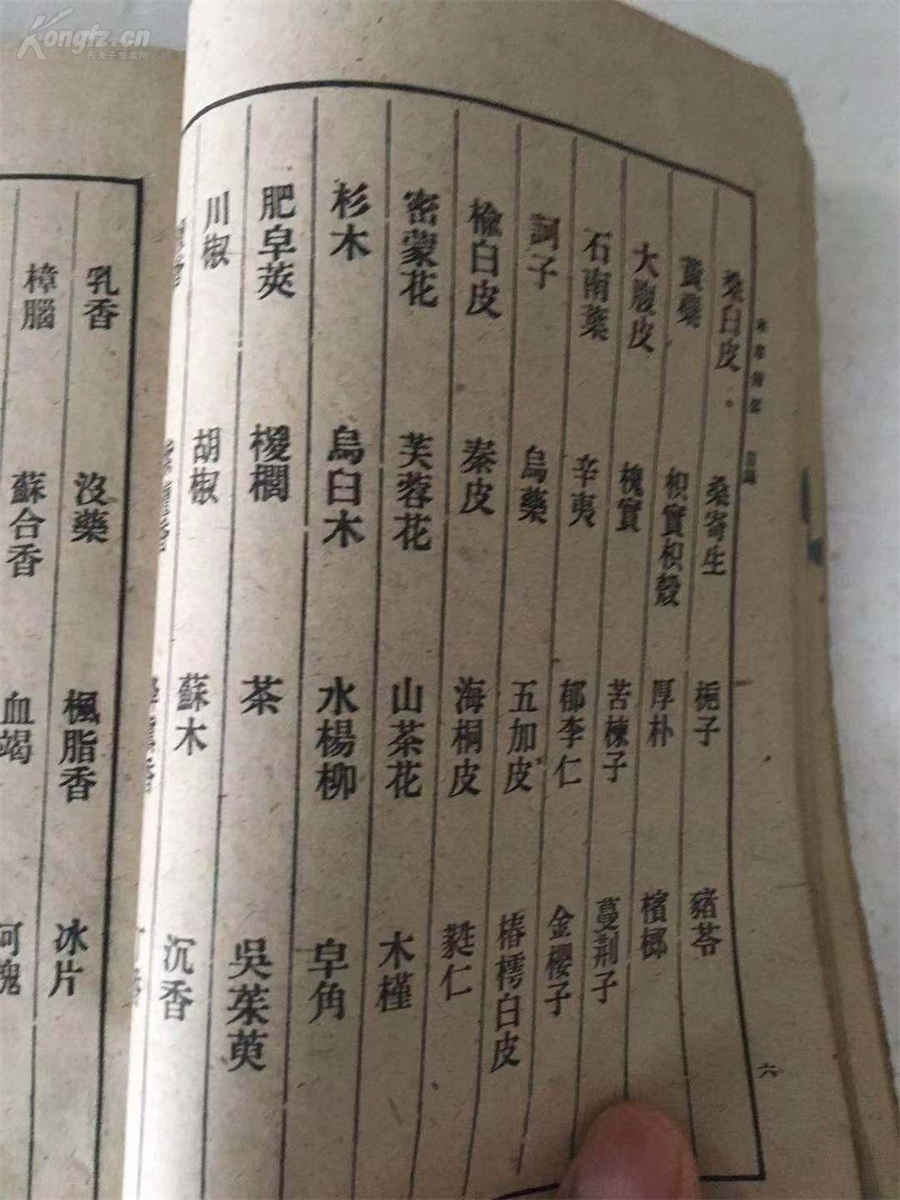 Kongfz.cn
目錄
桑白皮。 桑寄生 梔子 豬苓
黃蘗 枳實枳殼 厚朴 檳榔
大腹皮 槐實 苦楝子 蔓荆子
石南葉 辛夷 郁李仁 金櫻子
訶子 烏藥 五加皮 椿樗白皮
榆白皮 秦皮 海桐皮 蕤仁
密蒙花 芙蓉花 山茶花 木槿
杉木 烏臼木 水楊柳 皁角
肥皁莢 椶櫚 茶 吳茱萸
川椒 胡椒 蘇木 沉香
六
乳香 沒藥 楓脂香 冰片
樟腦 蘇合香 血竭